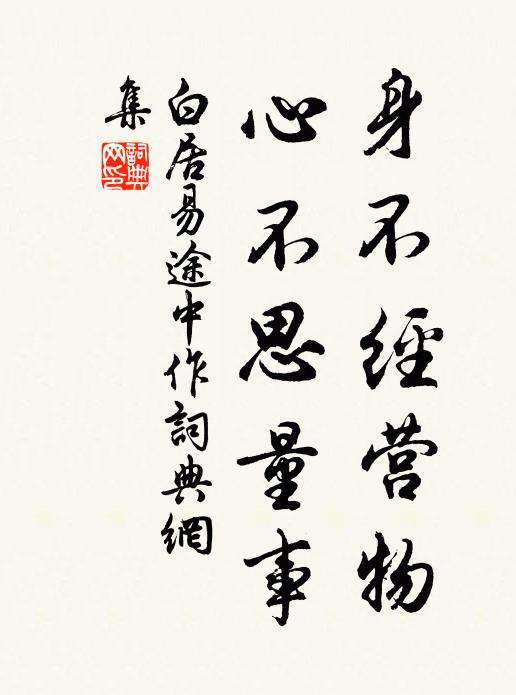 身不經营物
心不思量事
白居易途中作詞典網
集
詞典
网印